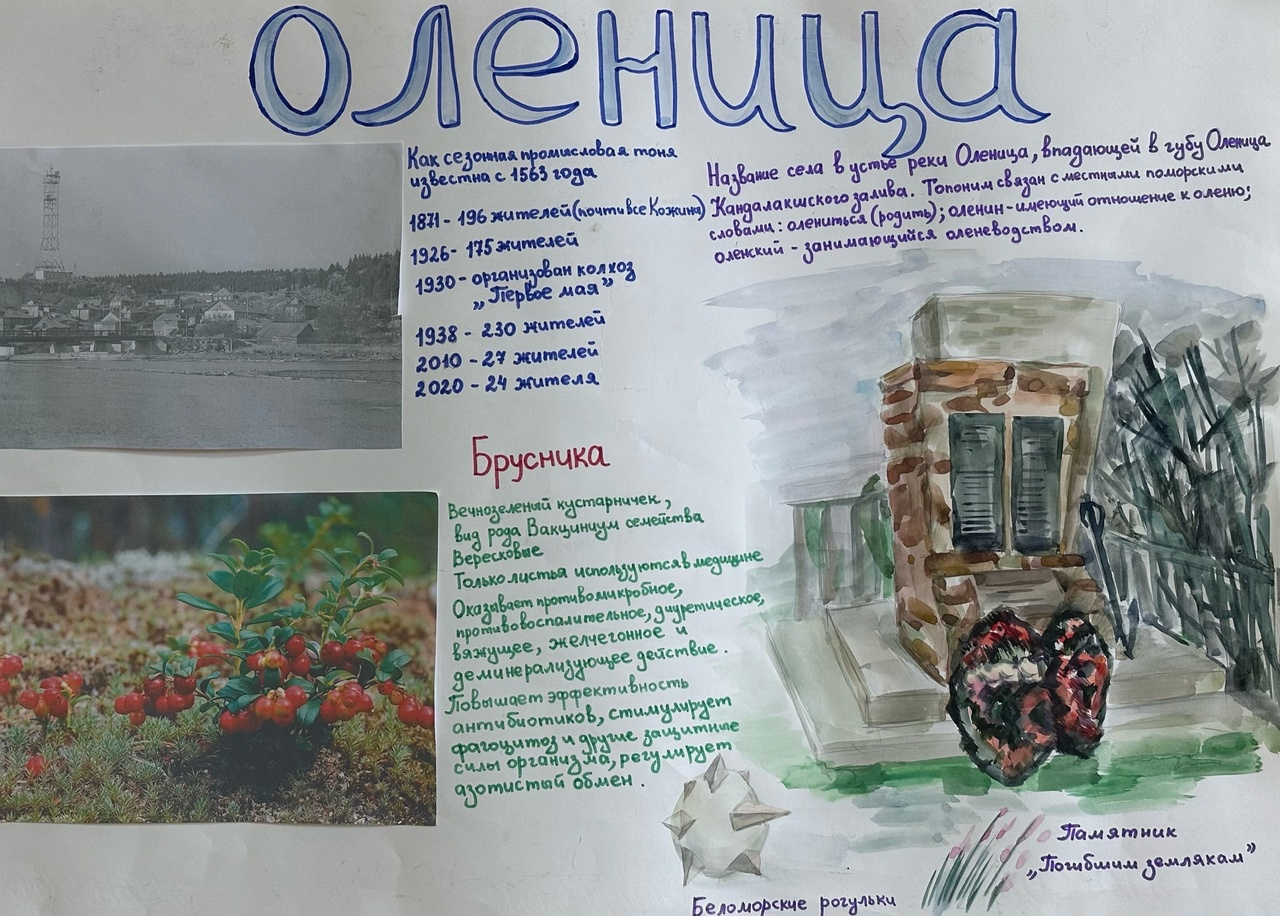 Оленица
Как сезонная промысловая тоня
известна с 1563 года
1871 - 196 жителей (почти все Кожины)
1926 - 175 жителей
1930 - организован колхоз
„Первое мая”
1938 - 230 жителей
2010 - 27 жителей
2020 - 24 жителя
Название села в устье реки Оленица, впадающей в губу Оленица
Кандалакшского залива. Топоним связан с местными поморскими
словами: олениться (родить); оленин - имеющий отношение к оленю;
оленский - занимающийся оленеводством.
Брусника
Вечнозеленый кустарничек,
вид рода Вакциниум семейства
Вересковые
Только листья используются в медицине
Оказывает противомикробное,
противовоспалительное, диуретическое,
вяжущее, желчегонное и
деминерализующее действие.
Повышает эффективность
антибиотиков, стимулирует
фагоцитоз и другие защитные
силы организма, регулирует
азотистый обмен.
Памятник
„Погибшим землякам”
Беломорские рогульки